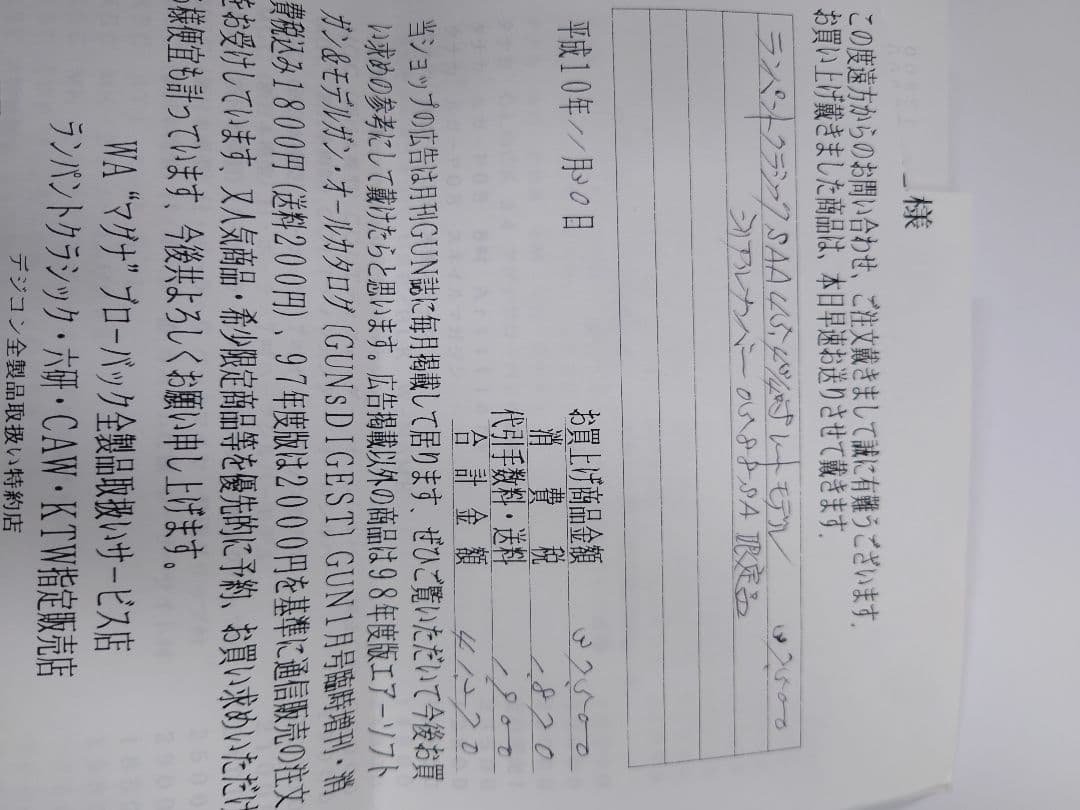 様
この度遠方からのお問い合わせ、ご注文戴きまして誠に有難うございます.
お買い上げ戴きました商品は、本日早速お送りさせて戴きます.
ランパントクラシックSAA 45, 4 3/4吋 ヒートモデル 37,500
シリアルナンバー 0588SA 限定品
平成10年11月30日
お買上げ商品金額 37,500
消費税 1,870
代引手数料・送料 1,900
合計金額 41,270
当ショップの広告は月刊GUN誌に毎月掲載して居ります、ぜひご覧いただいて今後お買
い求めの参考にして戴けたらと思います。広告掲載以外の商品は98年度版エアーソフト
ガン&モデルガン・オールカタログ(GUNsDIGEST)GUN1月号臨時増刊・消
費税込み1800円(送料200円)、97年度版は2000円を基準に通信販売の注文
をお受けしています、又人気商品・希少限定商品等を優先的に予約、お買い求めいただけ
る様便宜も計っています、今後共よろしくお願い申し上げます。
WA“マグナ”ブローバック全製品取扱いサービス店
ランパントクラシック・六研・CAW・KTW指定販売店
デジコン全製品取扱い特約店